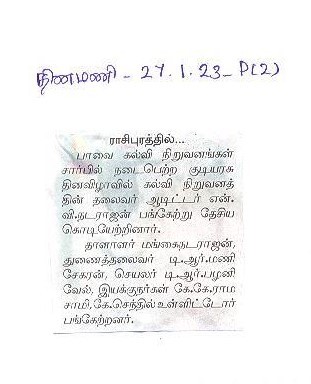 தினமணி - 27.1.23 - P(2)
ராசிபுரத்தில்...
பாவை கல்வி நிறுவனங்கள்
சார்பில் நடைபெற்ற குடியரசு
தினவிழாவில் கல்வி நிறுவனத்
தின் தலைவர் ஆடிட்டர் என்.
வி.நடராஜன் பங்கேற்று தேசிய
கொடியேற்றினார்.
தாளாளர் மங்கைநடராஜன்,
துணைத்தலைவர் டி.ஆர்.மணி
சேகரன், செயலர் டி.ஆர்.பழனி
வேல், இயக்குநர்கள் கே.கே.ராம
சாமி, கே.செந்தில் உள்ளிட்டோர்
பங்கேற்றனர்.